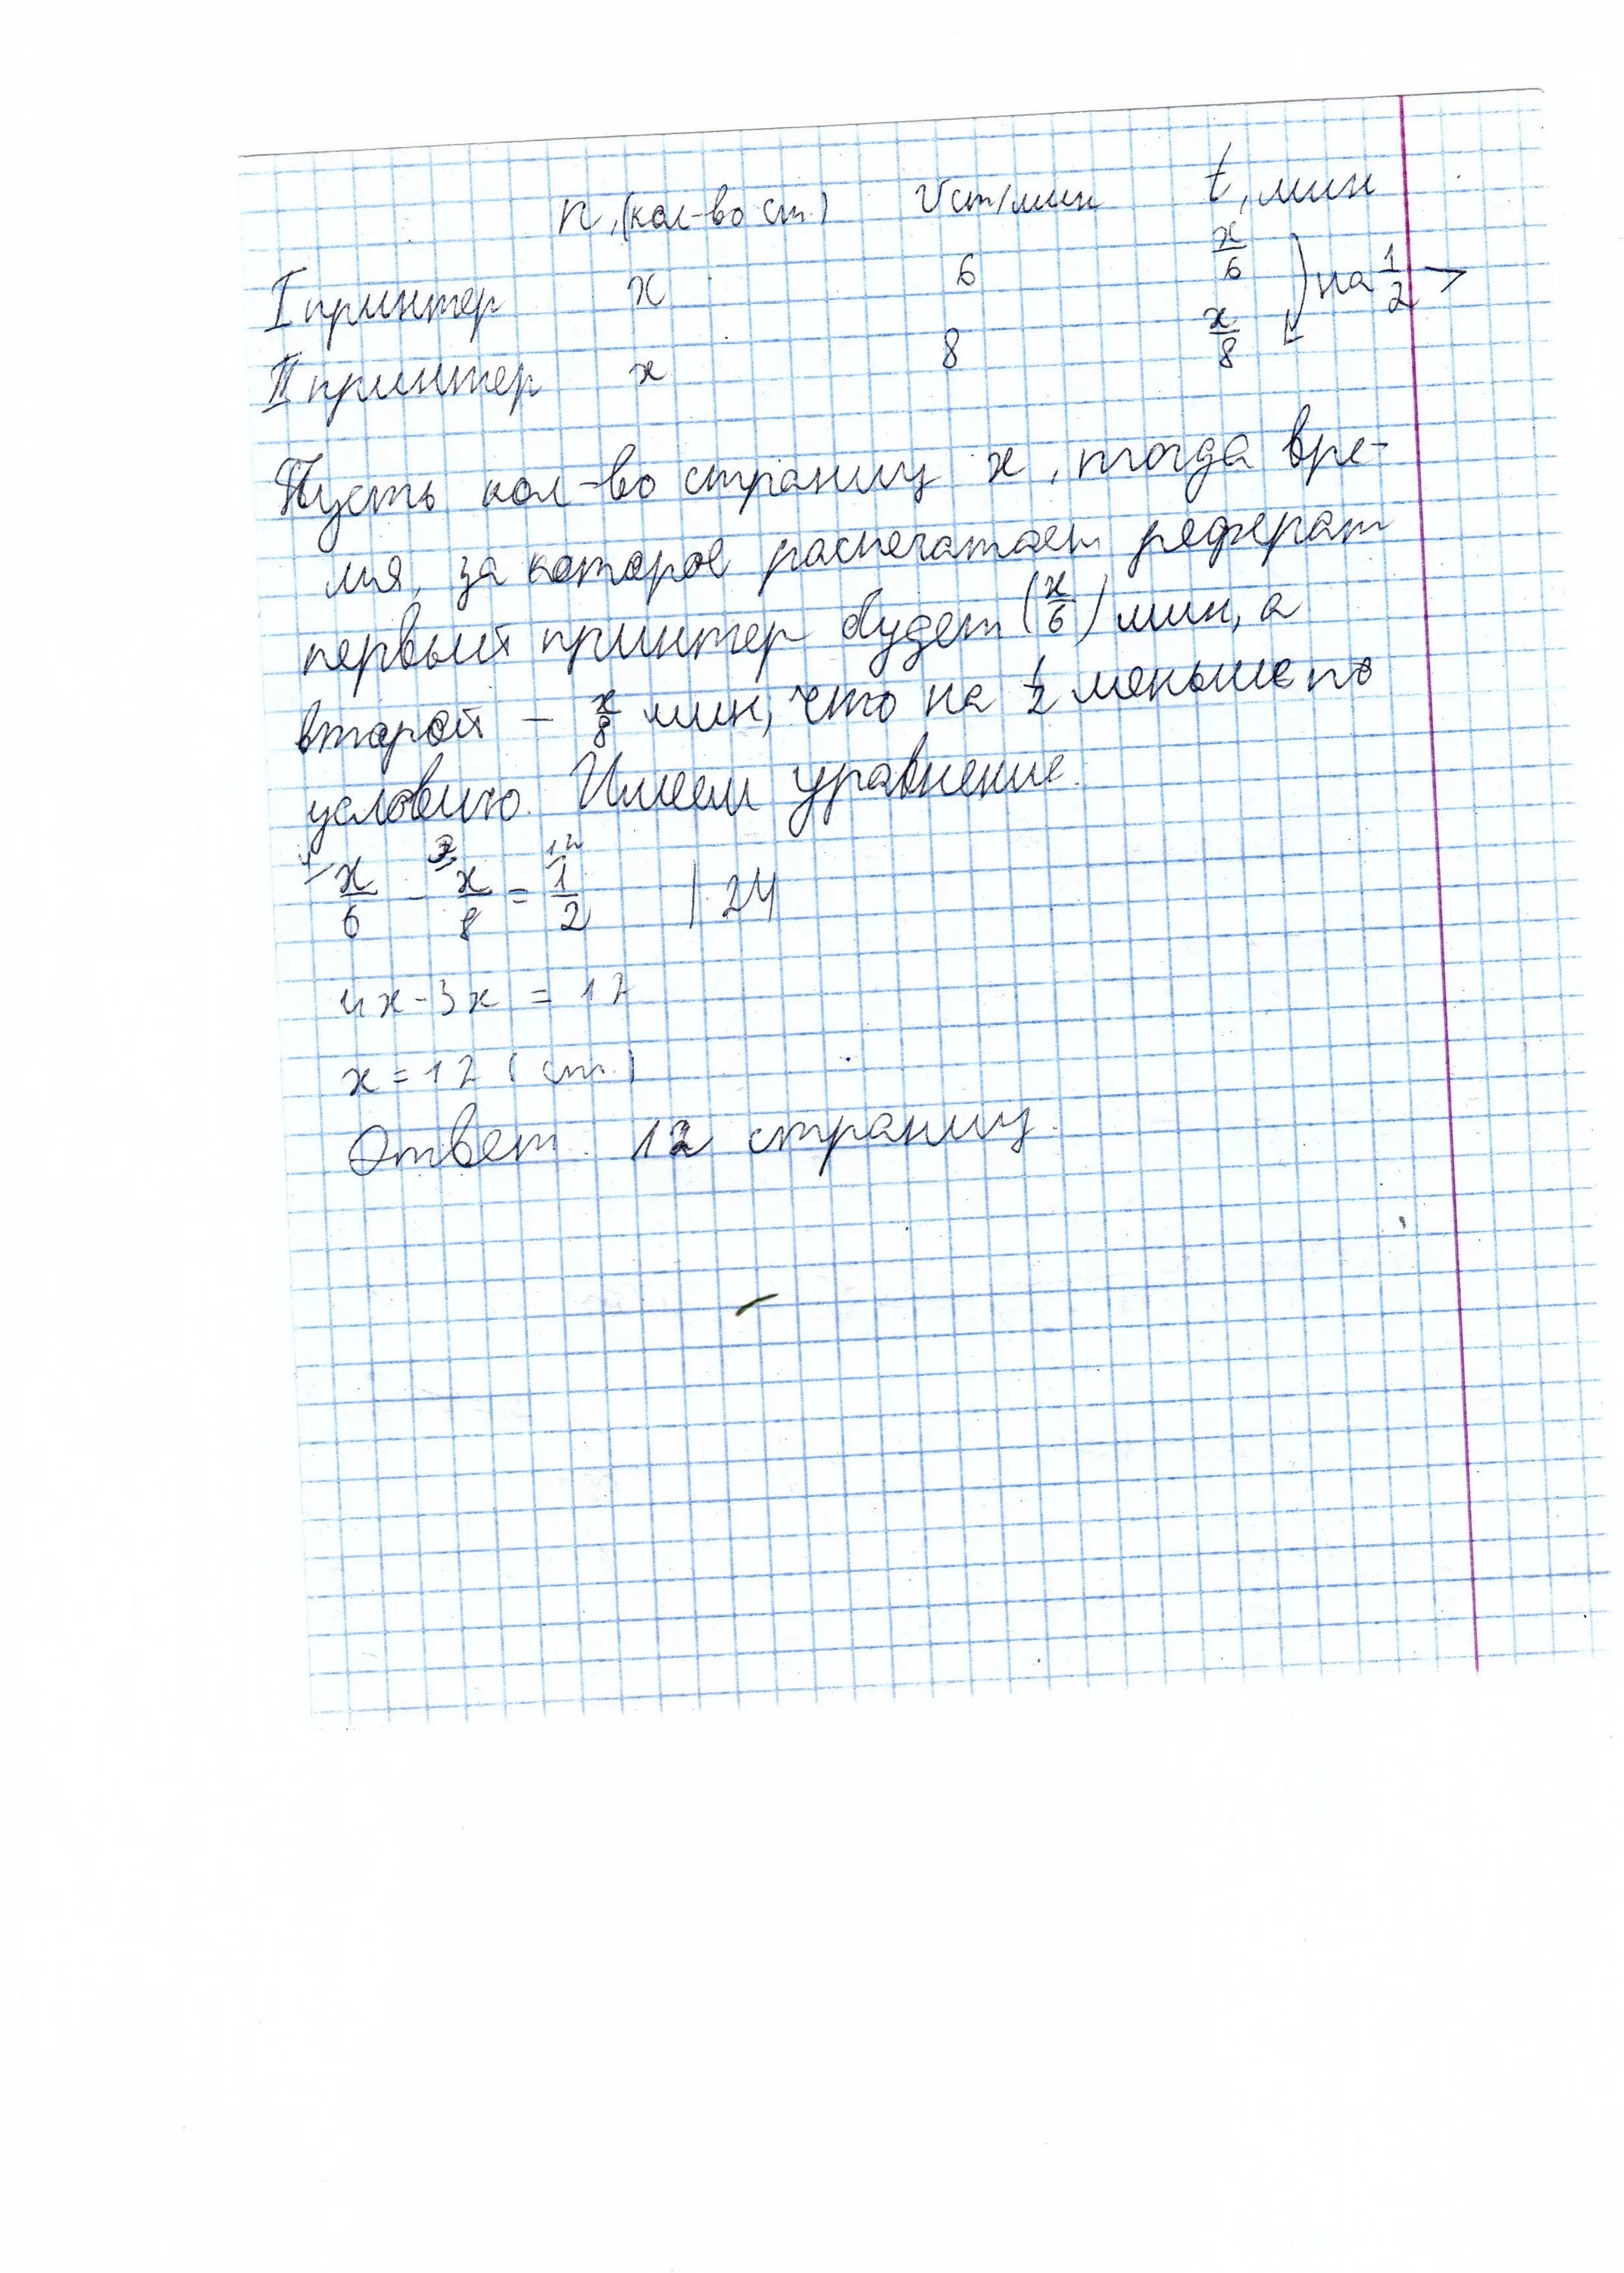 n, (кол-во ст.) V ст/мин t, мин
I принтер x 6 x/6 на 1/2 >
II принтер x 8 x/8
Пусть кол-во страниц x, тогда вре-
мя, за которое распечатает реферат
первый принтер будет (x/6) мин, а
второй – x/8 мин, что на 1/2 меньше по
условию. Имеем уравнение.
x/6 - x/8 = 1/2 | 24
4x - 3x = 12
x = 12 (ст.)
Ответ. 12 страниц.